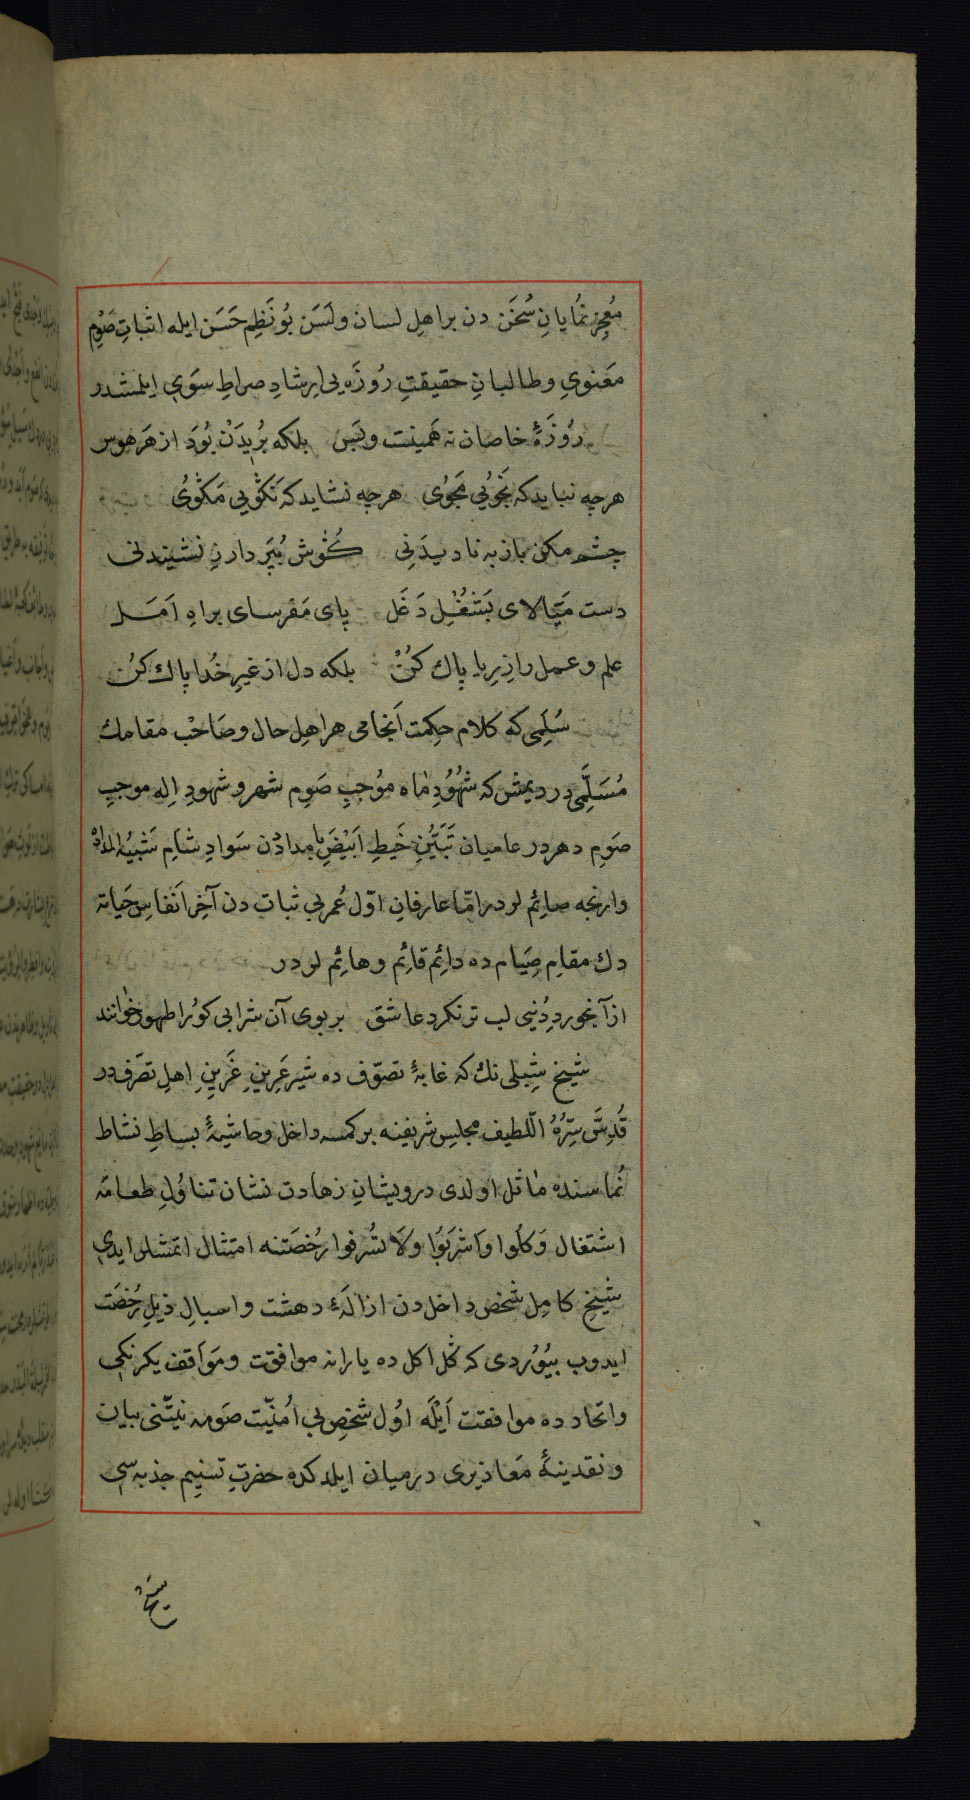 مُعجِز نُمایانِ سُخَن دن بر اهلِ لسان ولَسَن بُو نَظمِ حَسَن ایله اثباتِ صَوْمِ
مَعنوی و طالبانِ حقیقتِ رُوزَه یی اِرشادِ صراطِ سَوِی ایلمشدر
رُوزَۀ خاصان نه هَمینست و بَس بلکه بُریدَنْ بُوَد از هَر هوس
هرچه نباید که بَجُویی مَجُوی هرچه نشاید که نَکُویی مَکُویُ
چشم مکن باز به نادیدَنِی کُوش بُبَر دار زِ نشنیدنی
دست مَیَالای بَشُغْلِ دَغَل پای مَفَرسای براهِ اَمَل
علم و عمل را زِ رِیا پاك کُنْ بلکه دل از غیرِ خُدا پاك کن
سُلَمِی که کلام حِکمت اَنجامی هر اهلِ حال و صَاحْب مقامك
مُسَلَّمی در دیمش که شُهُودِ مٰاه مُوجبِ صَومِ شهر و شهودِ اِله موجبِ
صَومِ دهردر عامیان تَبَیُّنِ خَیطِ اَبْیَضِ بامدادْن سَوادِ شامِ شَبیه المِدادْ
وارنجه صائِم لردر امّا عارفانِ اوّل عُمرِ بی ثبات دن آخِرِ اَنفاسِ حَیاته
دك مقامِ صِیام ده دائِم قائِم و هائِم لردر
از آبخوردِ دُنیی لب تر نکرد عاشق بر بوی آن شرابی کو را طهور خوانند
شیخ شِبلی نك که غابۀ تصوّف ده شیرِ عَرینِ غَرینِ اهلِ تصَرّفدر
قُدِسَّ سِرُّهُ الّلطیف مجلسِ شریفنه بر کمسه داخل و حاشیۀ بساطِ نشاط
نُماسنده مٰاثل اولدی درویشانِ زهادت نشان تناوُلِ طعامه
اشتغال وَکلُوا وَاشرَبُوا وَلَا تُسْرفوا رُخصَتنه امتثال اتمشلر ایدی
شیخِ کامِل شخصِ داخل دن ازالَۀ دهشت و اسبالِ ذیلِ رُخصَت
ایدوب بیُوردی که کُل اکل ده یارانه موافقت و مَواقف یکرنکی
و اتّحاد ده موافقت اَیْلَه اوُل شخصِ بی اُمنیّت صَومه نیتّنی بیان
و نقدینۀ مَعاذیری درمیان ایلدکده حضرتِ تسنیِم جذبه سی
شیخ